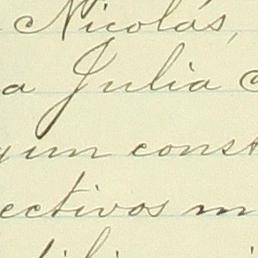 Nicolás,
a Julia
gun const
ectivos m